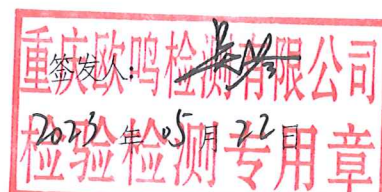 重庆欧鸣检测有限公司
签发人:
2023年05月22日
检验检测专用章